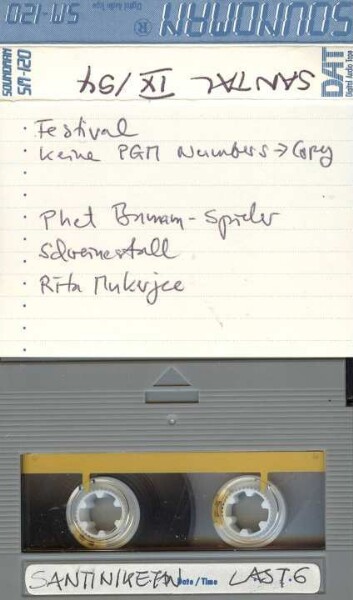 SM-120
Digital Audio Tape
SOUNDMAN ®
SOUNDMAN
SM-120
SANTAL IX/94
DAT
Digital Audio Tape
· Festival
· Keine PGM Numbers → Copy
· Spieler
· Schweinestall
· Rita Mukerjee
SANTINIKETAN Date / Time LAST.6